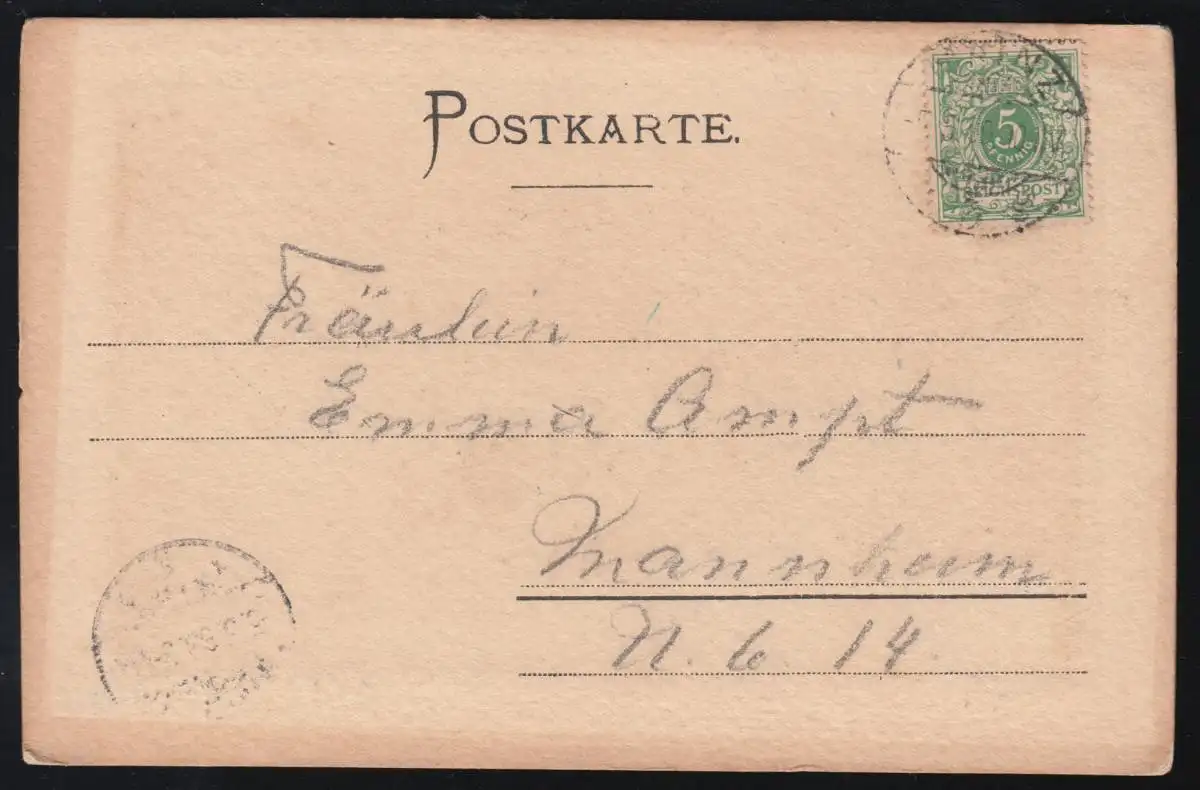 POSTKARTE.
5
PFENNIG
REICHSPOST
Fräulein
Emma Ampt
Mannheim
N. 6. 14.